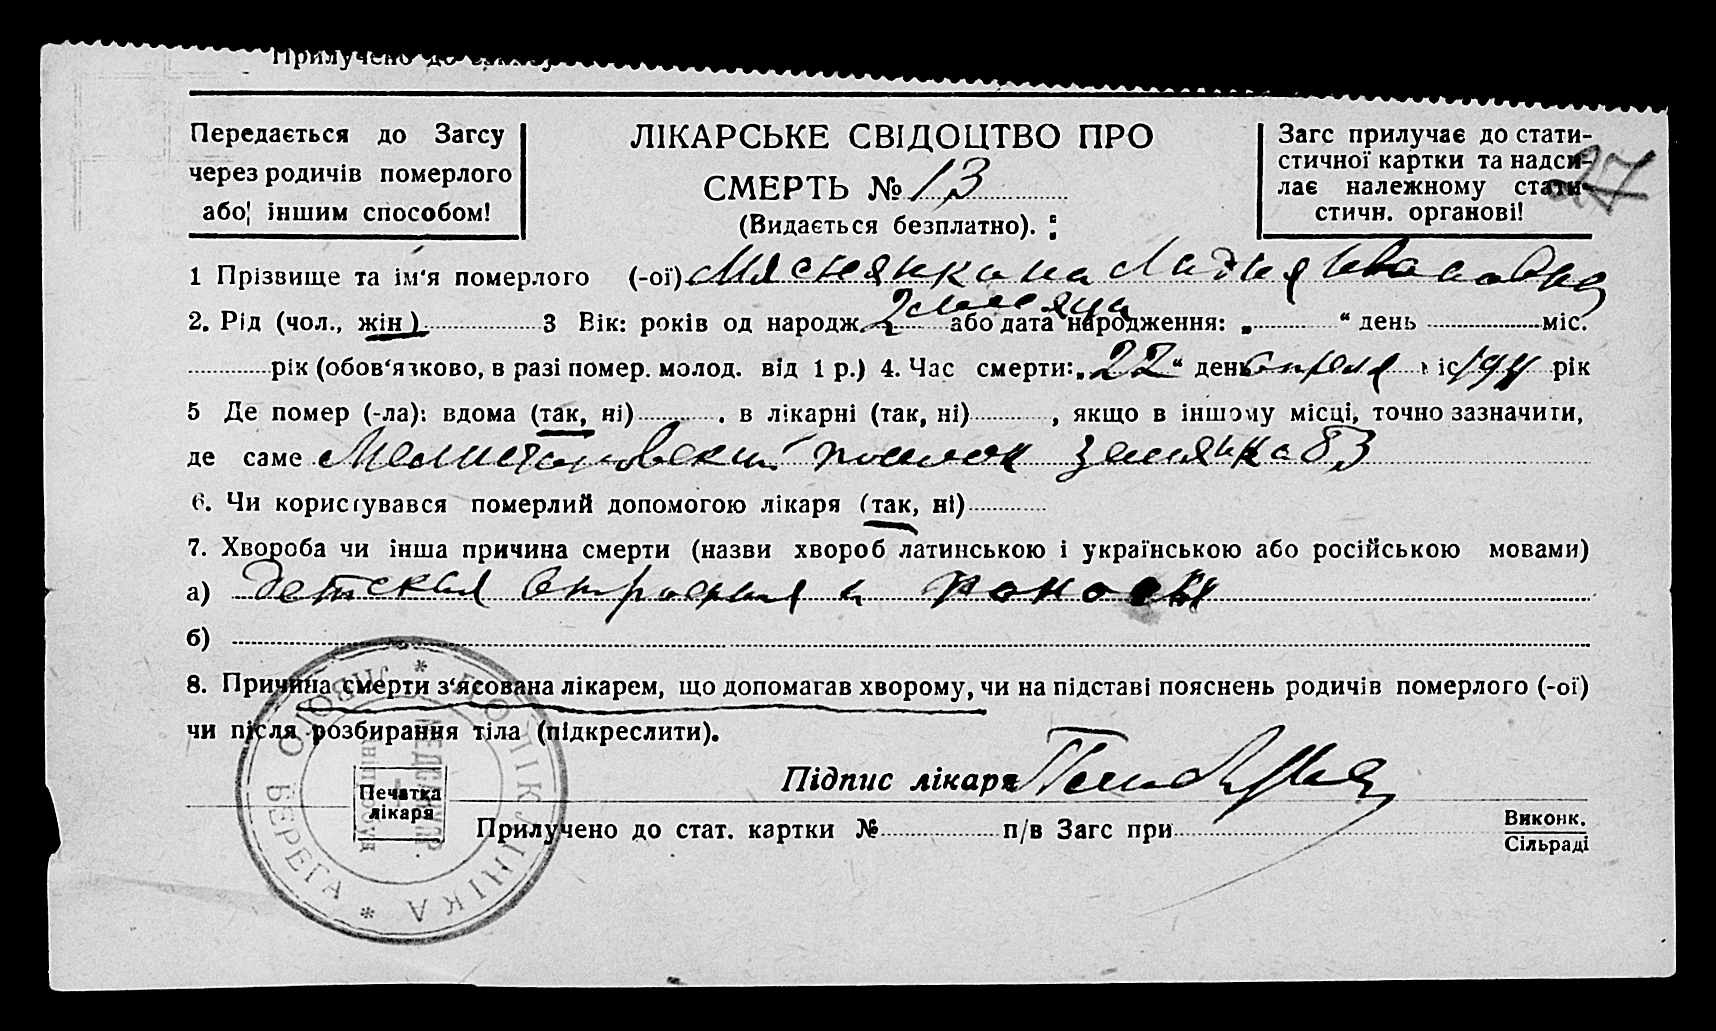 Прилучено до
Передається до Загсу
через родичів померлого
або іншим способом!
ЛІКАРСЬКЕ СВІДОЦТВО ПРО
СМЕРТЬ № 13
(Видається безплатно).
Загс прилучає до стати-
стичної картки та надси-
лає належному стати-
стичн. органові!
27
1 Прізвище та ім'я померлого (-ої) Лидия Ивановна
2. Рід (чол., жін.) 3 Вік: років од народж. 2 месяца або дата народження: „ “ день міс.
рік (обов'язково, в разі помер. молод. від 1 р.) 4. Час смерти: „22“ день апреля міс 1941 рік
5 Де помер (-ла): вдома (так, ні) , в лікарні (так, ні) , якщо в іншому місці, точно зазначити,
де саме поселок землянка 83
6. Чи користувався померлий допомогою лікаря (так, ні)
7. Хвороба чи інша причина смерти (назви хвороб латинською і українською або російською мовами)
а) детская атрофия и поносы
б)
8. Причина смерти з'ясована лікарем, що допомагав хворому, чи на підставі пояснень родичів померлого (-ої)
чи після розбирання тіла (підкреслити).
Підпис лікаря
Печатка
лікаря
Прилучено до стат. картки № п/в Загс при
Виконк.
Сільраді
* ПОЛІКЛІНІКА * ЛІВОГО БЕРЕГА